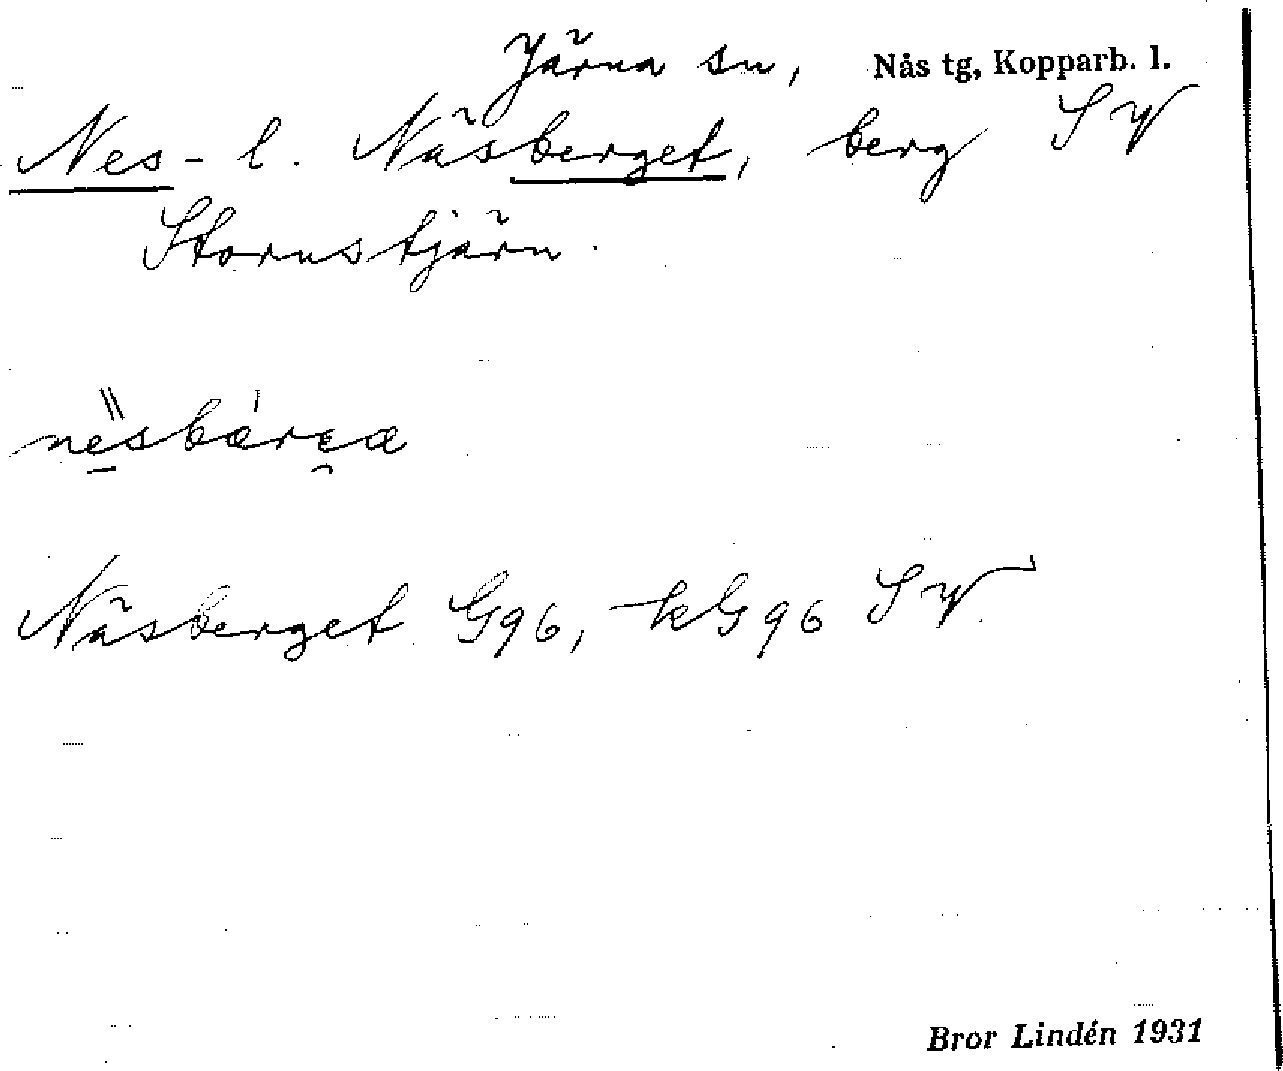 Järna sn, Nås tg, Kopparb. l.
Nes- l. Näsberget, berg SV
Stornstjärn.
Näsberget G96, kG96 SV
Bror Lindén 1931